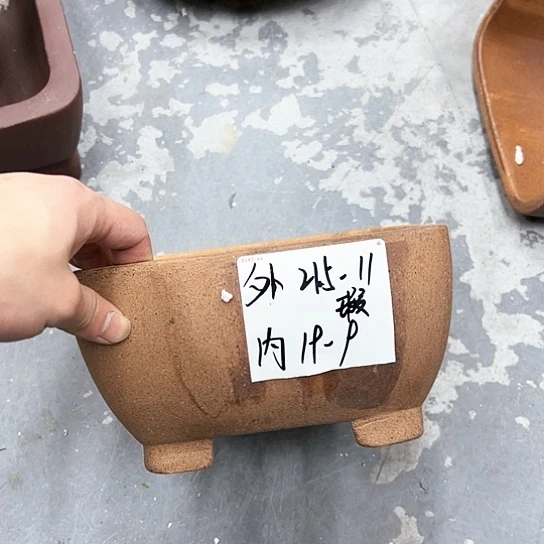 外 21.5-11
瑕
内 19-9